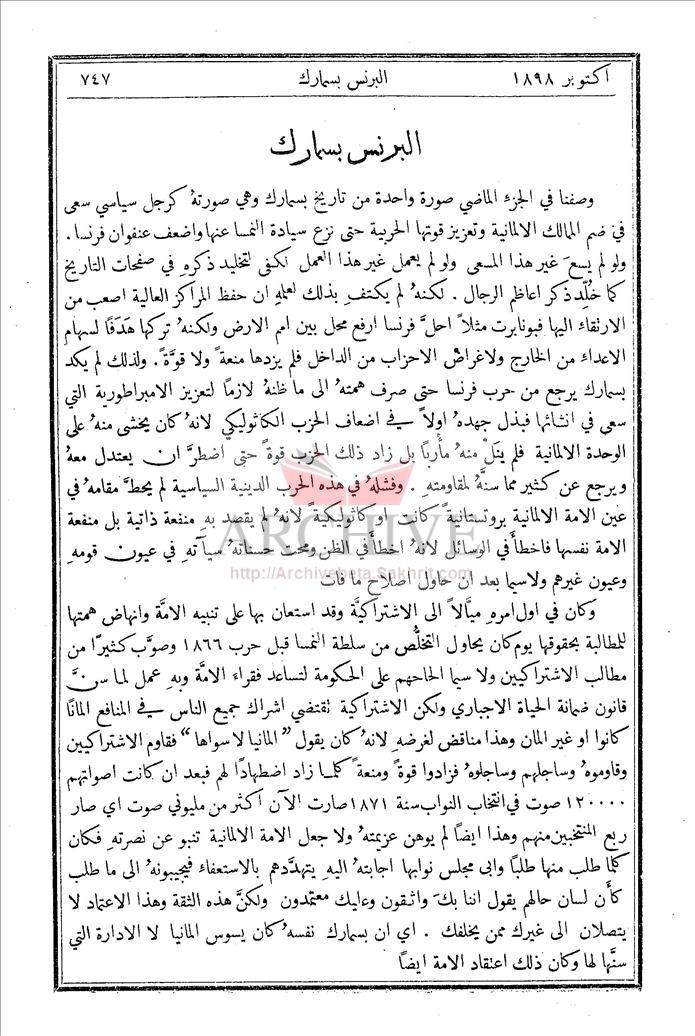 اكتوبر ١٨٩٨ البرنس بسمارك ٧٤٧
البرنس بسمارك
وصفنا في الجزء الماضي صورة واحدة من تاريخ بسمارك وهي صورتهُ كرجل سياسي سعى
في ضم الممالك الالمانية وتعزيز قوتها الحربية حتى نزع سيادة النمسا عنها واضعف عنفوان فرنسا .
ولو لم يسعَ غير هذا المسعى ولو لم يعمل غير هذا العمل لكفى لتخليد ذكرهِ في صفحات التاريخ
كما خُلِّد ذكر اعاظم الرجال . لكنهُ لم يكتفِ بذلك لعلمهِ ان حفظ المراكز العالية اصعب من
الارتقاء اليها فبونابرت مثلاً احلَّ فرنسا ارفع محل بين امم الارض ولكنهُ تركها هَدَفًا لسهام
الاعداء من الخارج ولاغراض الاحزاب من الداخل فلم يزدها منعة ً ولا قوَّة ً . ولذلك لم يكد
بسمارك يرجع من حرب فرنسا حتى صرف همتهُ الى ما ظنهُ لازمًا لتعزيز الامبراطورية التي
سعى في انشائها فبذل جهدهُ اولاً في اضعاف الحزب الكاثوليكي لانهُ كان يخشى منهُ على
الوحدة الالمانية فلم ينَلْ منهُ مأربًا بل زاد ذلك الحزب قوة ً حتى اضطرَّ ان يعتدل معهُ
ويرجع عن كثير مما سنَّهُ لمقاومتهِ . وفشلهُ في هذه الحرب الدينية السياسية لم يحطَّ مقامهُ في
عين الامة الالمانية بروتستانية ً كانت او كاثوليكية لانهُ لم يقصد بهِ منفعة ذاتية بل منفعة
الامة نفسها فاخطأ في الوسائل لانهُ اخطأ في الظن ومحت حسناتهُ سيآتهِ في عيون قومهِ
وعيون غيرهم ولاسيما بعد ان حاول اصلاح ما فات
ARCHIVE
http://Archivebeta.Sakhrit.com
وكان في اول امرهِ ميَّالاً الى الاشتراكيَّة وقد استعان بها على تنبيه الامَّة وانهاض همتها
للمطالبة بحقوقها يوم كان يحاول التخلُّص من سلطة النمسا قبل حرب ١٨٦٦ وصوَّب كثيرًا من
مطالب الاشتراكيين ولا سيما الحاحهم على الحكومة لتساعد فقراء الامَّة وبهِ عمل لما سنَّ
قانون ضمانة الحياة الاجباري ولكن الاشتراكية تقتضي اشراك جميع الناس في المنافع المانًا
كانوا او غير المان وهذا مناقض لغرضهِ لانهُ كان يقول " المانيا لا سواها " فقاوم الاشتراكيين
وقاوموهُ وساجلهم وساجلوهُ فزادوا قوة ً ومنعة ً كلما زاد اضطهادًا لهم فبعد ان كانت اصواتهم
١٢٠٠٠٠ صوت في انتخاب النواب سنة ١٨٧١ صارت الآن اكثر من مليوني صوت اي صار
ربع المنتخبين منهم وهذا ايضًا لم يوهن عزيمتهُ ولا جعل الامة الالمانية تنبو عن نصرتهِ فكان
كلما طلب منها طلبًا وابى مجلس نوابها اجابتهُ اليهِ يتهدَّدهم بالاستعفاء فيجيبونهُ الى ما طلب
كأن لسان حالهم يقول اننا بكَ واثقون وعليك معتمدون ولكنَّ هذه الثقة وهذا الاعتماد لا
يتصلان الى غيرك ممن يخلفك . اي ان بسمارك نفسهُ كان يسوس المانيا لا الادارة التي
سنَّها لها وكان ذلك اعتقاد الامة ايضًا